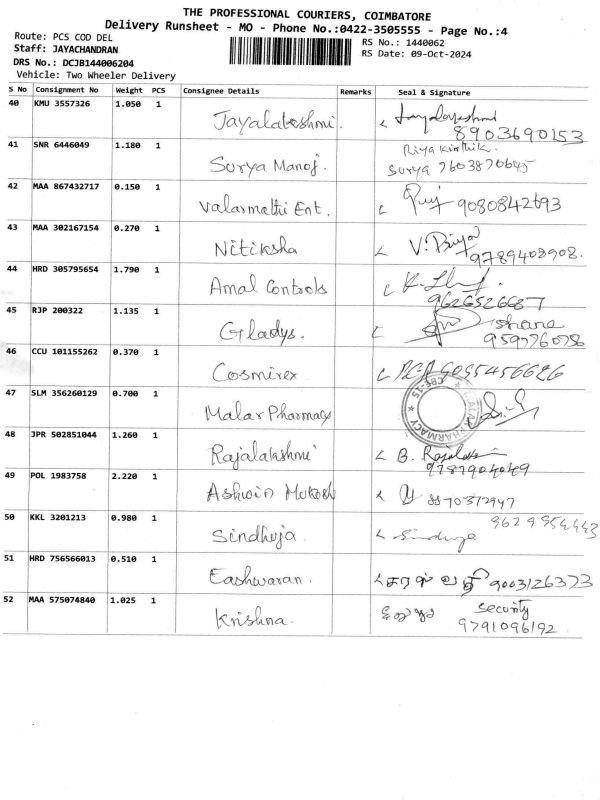 THE PROFESSIONAL COURIERS, COIMBATORE
Delivery Runsheet - MO - Phone No.:0422-3505555 - Page No.:4
Route: PCS COD DEL
RS No.: 1440062
Staff: JAYACHANDRAN
RS Date: 09-Oct-2024
DRS No.: DCJB144006204
Vehicle: Two Wheeler Delivery
S No Consignment No Weight PCS Consignee Details Remarks Seal & Signature
40 KMU 3557326 1.050 1 Jayalakshmi. Jayalakshmi
8903690153
41 SNR 6446049 1.180 1 Surya Manoj. Riya Karthik.
Surya 7603870645
42 MAA 867432717 0.150 1 Valarmathi Ent. 9080842693
43 MAA 302167154 0.270 1 Nitiksha V. Priya
9789408908.
44 HRD 305795654 1.790 1 Amal Controls
9626526687
45 RJP 200322 1.135 1 Gladys. Ishane
9597760756
46 CCU 101155262 0.370 1 Cosmirex 9095456626
47 SLM 356260129 0.700 1 Malar Pharmacy
MALAR PHARMACY CBE-15
48 JPR 502851044 1.260 1 Rajalakshmi B. Rajalakshmi
9787904049
49 POL 1983758 2.220 1 Ashwin Mukesh 8870372947
50 KKL 3201213 0.980 1 Sindhuja. Sindhuja 9629954443
51 HRD 756566013 0.510 1 Eashwaran. சரஸ்வதி 9003126373
52 MAA 575074840 1.025 1 Krishna. security
9791096192